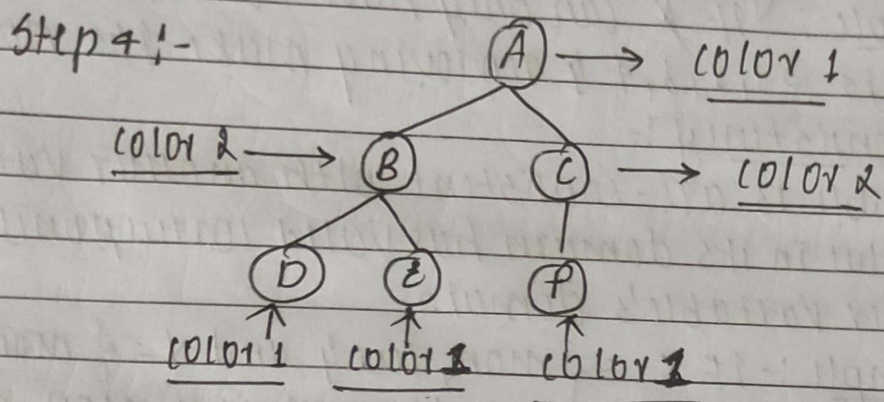 Step 4:-
A → color 1
color 2 → B C → color 2
D E F
color 1 color 1 color 1